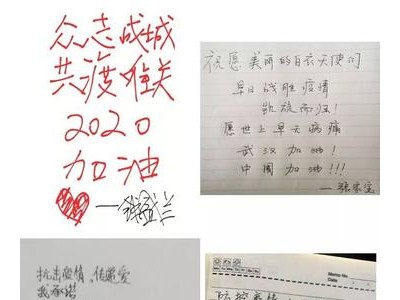 众志成城
共渡难关
2020
加油
祝愿美丽的白衣天使们
早日战胜疫情
凯旋而归!
愿世上早无病痛
武汉加油!
中国加油!!!
抗击疫情,传递爱
我承诺
Memo No.
Date
防控疫情